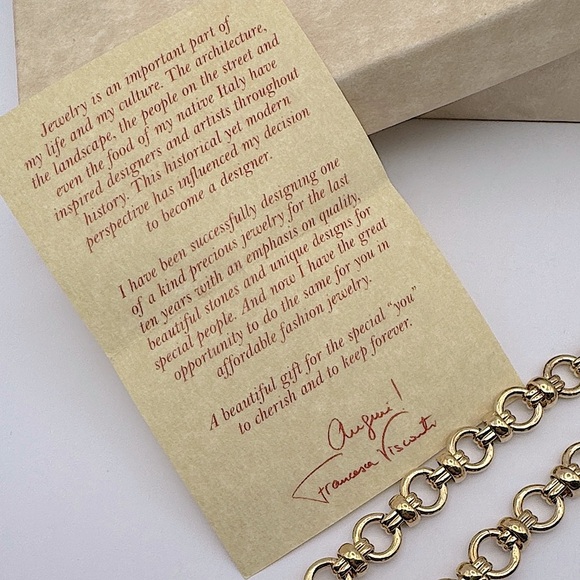 Jewelry is an important part of
my life and my culture. The architecture,
the landscape, the people on the street and
even the food of my native Italy have
inspired designers and artists throughout
history. This historical yet modern
perspective has influenced my decision
to become a designer.
I have been successfully designing one
of a kind precious jewelry for the last
ten years with an emphasis on quality,
beautiful stones and unique designs for
special people. And now I have the great
opportunity to do the same for you in
affordable fashion jewelry.
A beautiful gift for the special “you”
to cherish and to keep forever.
Auguri!
Francesca Visconti